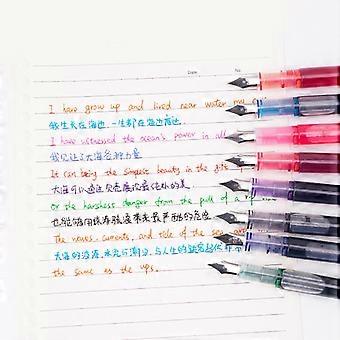 Date No.
I have grow up and lived near water my
我生长在海边,一生都在海边度过
I have witnessed the ocean's power in all
我见证了大海各种力量
It can bring the simplest beauty in the gift
大海可以通过贝壳展现最纯朴的美
or the harshest danger from the pull of a
也能够用
The waves, currents, and tide of the sea are
大海的波浪,水流与潮汐,与人生的跌宕起伏
the same as the ups.